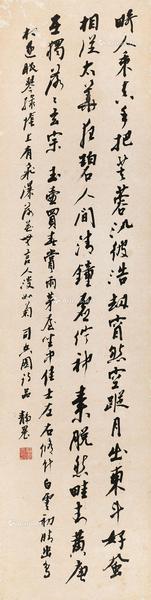 畸人乘真手把芙蓉汎彼浩劫窅然空蹤月出東斗好風
相從太華夜碧人聞清鐘虛佇神素脫然畦封黃唐
在獨落落玄宗 玉壺買春賞雨茅屋坐中佳士左右修竹白雲初晴幽鳥
相逐眠琴綠陰上有飛瀑落花無言人淡如菊 司空圖詩品 靜農